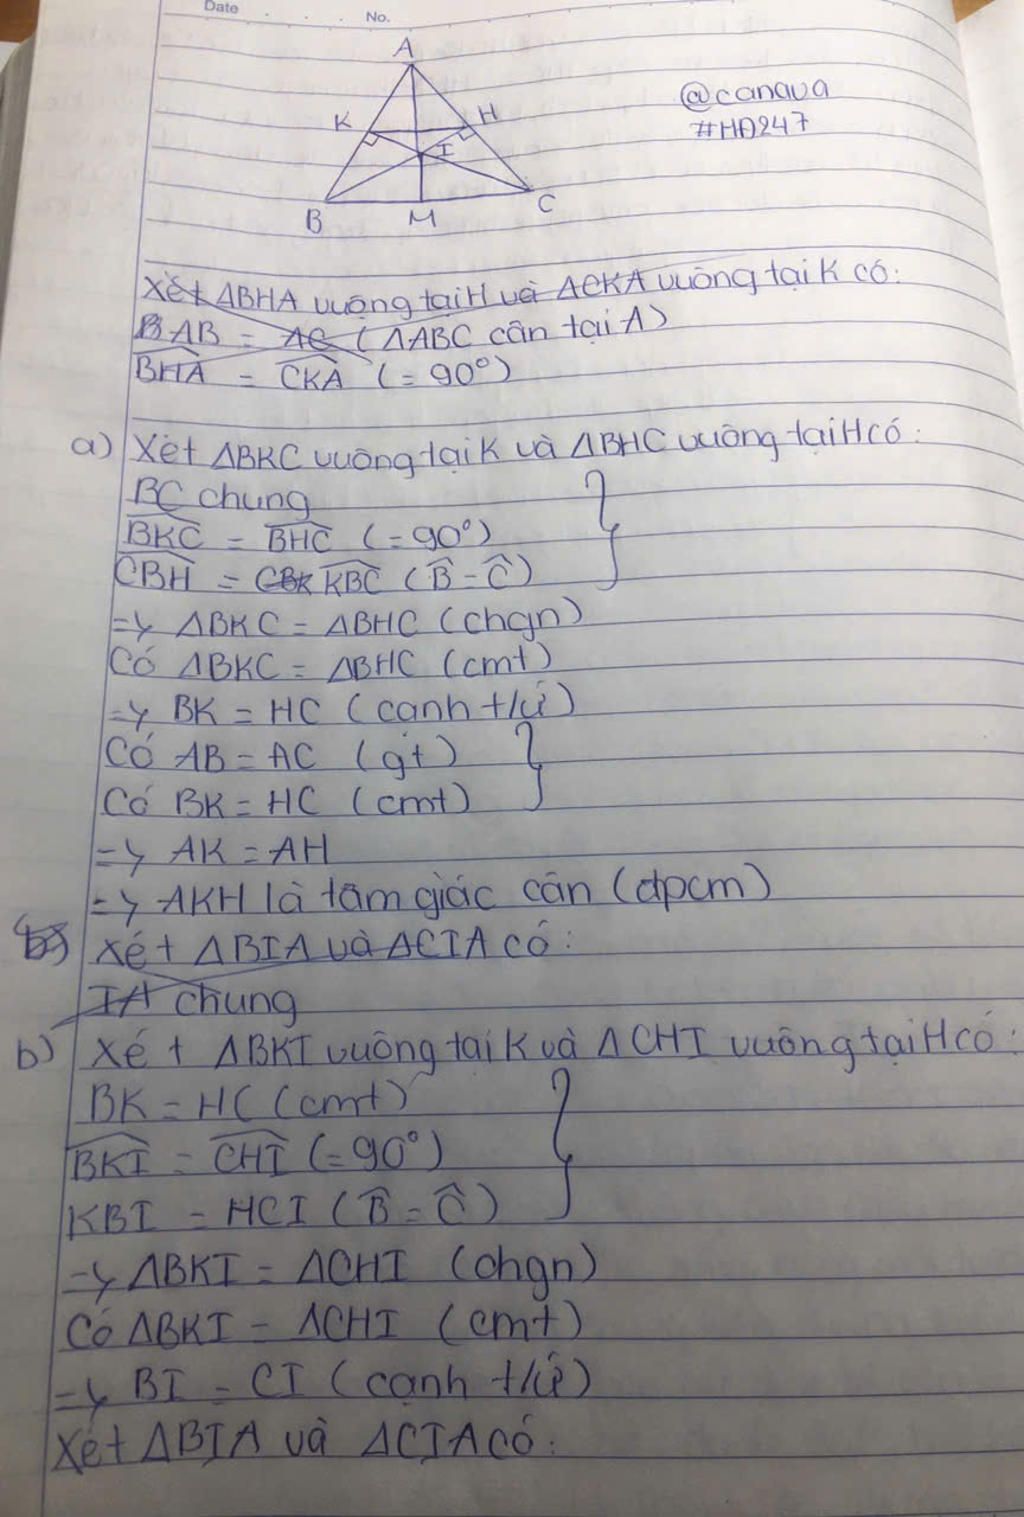 Date No.
A
@canava
#HA247
K H
I
B M C
Xét ΔBHA vuông tại H và ΔCKA vuông tại K có:
AB = AC (ΔABC cân tại A)
BHA = CKA (= 90°)
a) Xét ΔBKC vuông tại K và ΔBHC vuông tại H có:
BC chung
BKC = BHC (= 90°)
CBH = CBK KBC (B = C)
=> ΔBKC = ΔBHC (chgn)
Có ΔBKC = ΔBHC (cmt)
=> BK = HC (cạnh t/ứ)
Có AB = AC (gt)
Có BK = HC (cmt)
=> AK = AH
=> AKH là tam giác cân (đpcm)
b) Xét ΔBIA và ΔCIA có:
IA chung
b) Xét ΔBKI vuông tại K và ΔCHI vuông tại H có:
BK = HC (cmt)
BKI = CHI (= 90°)
KBI = HCI (B = C)
=> ΔBKI = ΔCHI (chgn)
Có ΔBKI = ΔCHI (cmt)
=> BI = CI (cạnh t/ứ)
Xét ΔBIA và ΔCIA có: